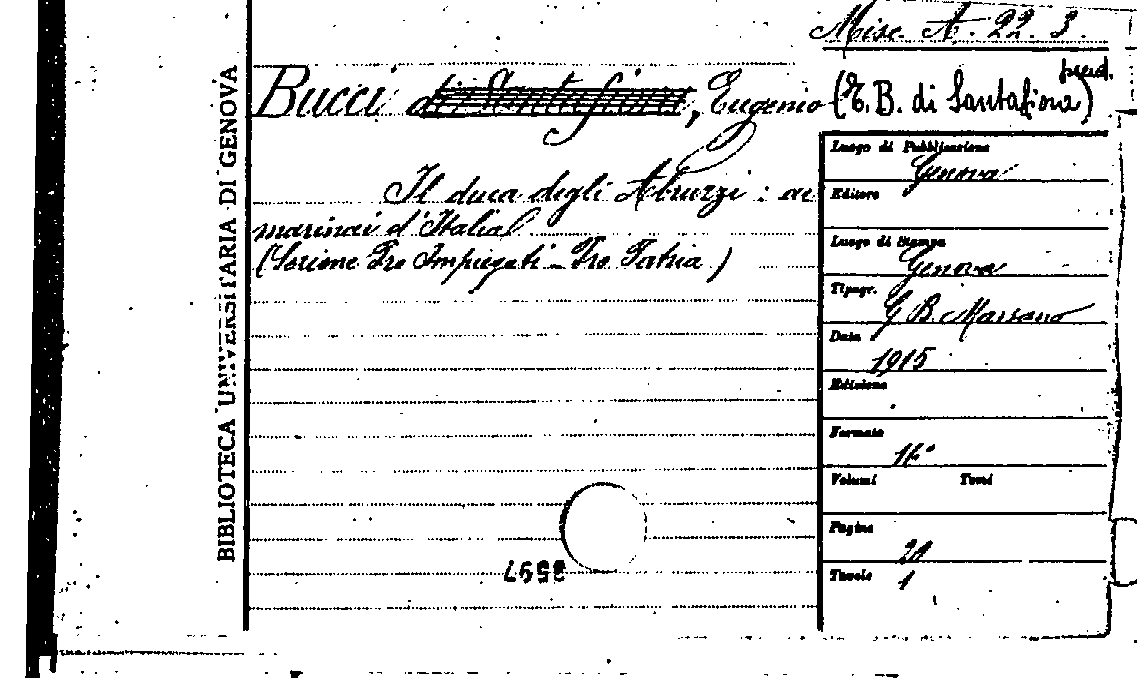 Misc. A. 22. 3.
Bucci di Santafiora, Eugenio (E. B. di Santafiora) pseud.
Il duca degli Abruzzi : ai
marinai d'Italia
(Sezione Pro Impiegati - Pro Patria)
BIBLIOTECA UNIVERSITARIA DI GENOVA
Luogo di Pubblicazione
Genova
Editore
Luogo di Stampa
Genova
Tipogr.
G. B. Marsano
Data
1915
Edizione
Formato
16°
Volumi Tomi
Pagine
Tavole 1